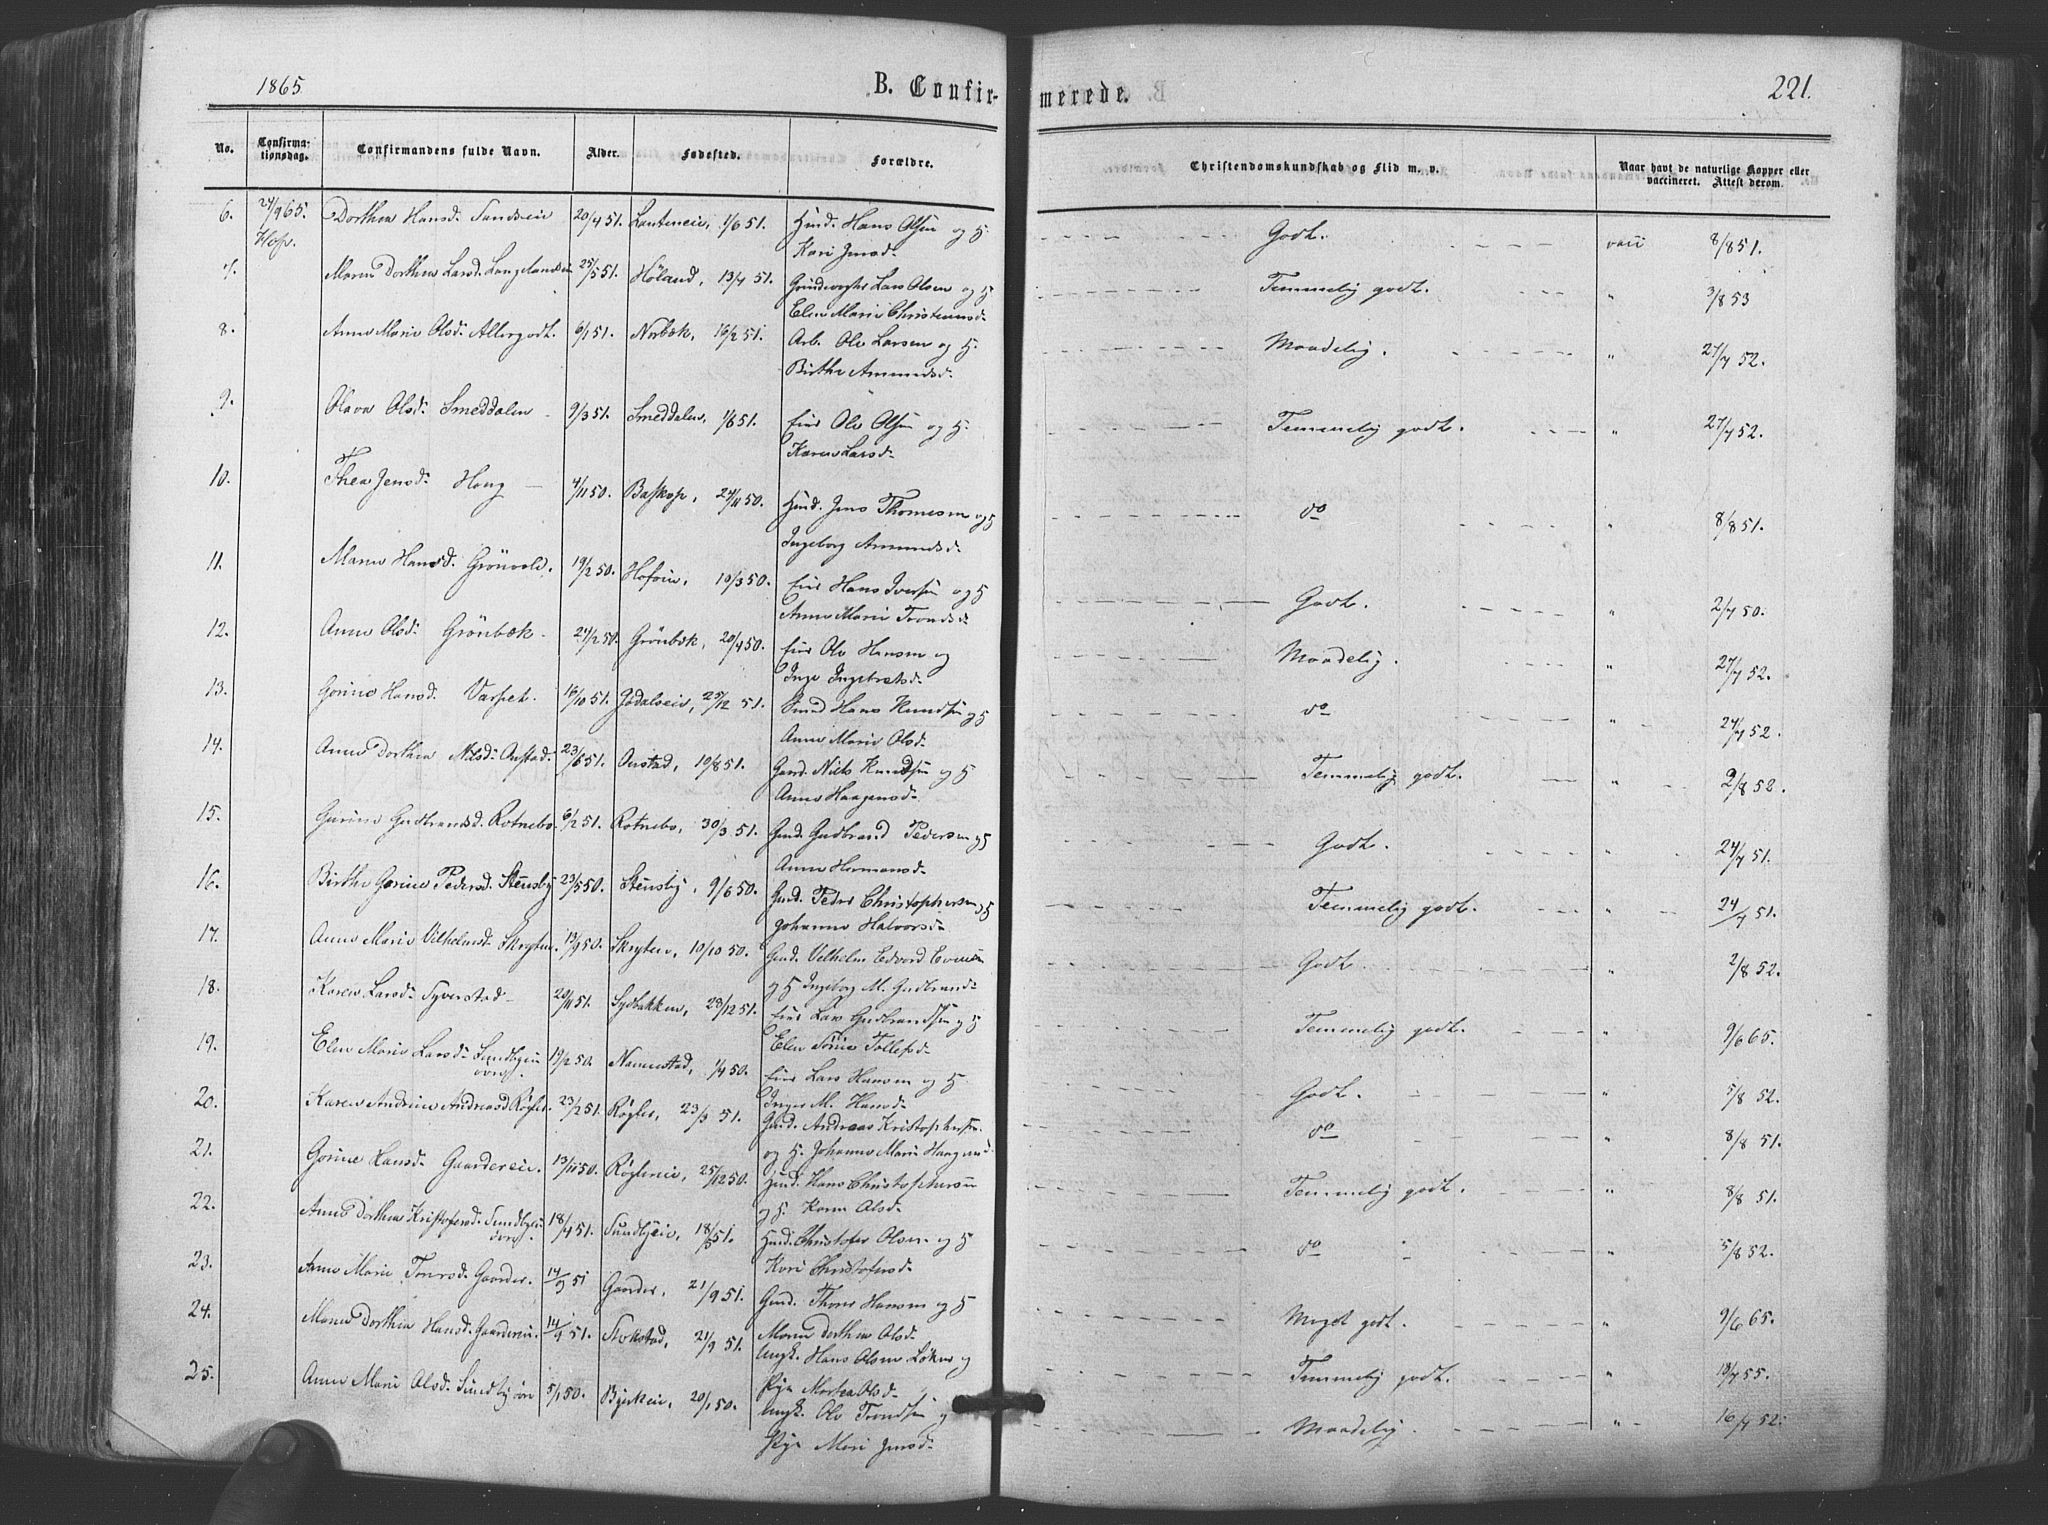 1865
B. Confirmerede.
221.
No. Confirmationsdag. Confirmandens fulde Navn. Alder. Fødested. Forældre. Christendomskundskab og Flid m. v. Naar havt de naturlige Kopper eller vaccineret. Attest derom.
6. 24/9 65. Dorthea Hansd. Sandveie 20/4 51. 1/6 51. Huusd. Hans Olsen og H. Godt. vacc 8/8 51.
Kari Jensd.
7. Maren Dorthea Larsd. 25/5 51. Høland, 13/7 51. Lars Olsen og H Temmelig godt. " 3/8 53
Elen Marie Christensd.
8. Anne Marie Olsd. Allergodt. 6/1 51. Norbæk, 16/2 51. Arb. Ole Larsen og H. Maadelig. " 27/7 52.
Birthe Amundsd.
9. Olava Olsd. Smeddalen 9/3 51. Smeddalen, 1/6 51. Ole Olsen og H. Temmelig godt. " 27/7 52.
Karen Larsd.
10. Thea Jensd. Haug 4/11 50. Baskop, 24/11 50. Huusd. Jens Thomesen og H do " 8/8 51.
Ingeborg Amundsd.
11. Maren Hansd. Grönvold. 19/2 50. 10/3 50. Hans Iversen og H Godt. " 2/7 50.
Anne Marie Trondsd.
12. Anne Olsd. Grönbæk. 24/2 50. Grönbæk, 20/4 50. Ole Hansen og Maadelig. " 27/7 52.
Inge Ingebretsd.
13. Gorine Hansd. Varpet. 16/10 51. 25/12 51. Smed Hans Knudsen og H do " 24/7 52
Anne Marie Olsd.
14. Anne Dorthea Nilsd. Onstad. 23/6 51. Onstad, 10/8 51. Gaard. Niels Knudsen og H Temmelig godt. " 2/8 52.
Anne Haagensd.
15. Gurine Gudbrandsd. Rotnebo. 6/2 51. Rotnebo, 30/3 51. Gaard. Gudbrand Pedersen og H Godt. " 24/7 51.
Anne Hermansd.
16. Birthe Gorine Pedersd. Stensby 23/5 50. Stensby, 9/6 50. Gaard. Peder Christophersen og H Temmelig godt. " 24/7 51.
Johanne Halvorsd.
17. Anne Marie Vilhelmsd. Skryten. 13/9 50. Skryten, 10/10 50. Gaard. Vilhelm Edvard Evensen Godt. " 2/8 52.
og H Ingeborg M. Gudbrandsd.
18. Karen Larsd. Syverstad 20/11 51. Sydbakken, 28/12 51. Lars Gudbrandsen og H Temmelig godt. " 9/6 65.
Elen Sörine Tollefsd.
19. Elen Marie Larsd. 19/2 50. Nannestad, 1/4 50. Lars Hansen og H. Godt. " 5/8 52.
Inger M. Hansd.
20. Karen Andrine Andreasd. Røgler. 23/2 51. Røgler, 23/3 51. Gaard. Andreas Kristophersen do " 8/8 51.
og H. Johanne Marie Haagensd.
21. Gorine Hansd. Gaardereie. 13/11 50. Røglereie, 25/12 50. Huusd. Hans Christophersen Temmelig godt. " 8/8 51.
og H. Karen Olsd.
22. Anne Dorthea Kristofersd. 18/4 51. Sundbyeie, 18/5 51. Huusd. Christofer Olsen og H do " 5/8 52.
Kari Christofersd.
23. Anne Marie Gaarder. 14/9 51 Gaarder, 21/9 51. Gaard. Hansen og H Meget godt. " 9/6 65.
Maren Dorthea Olsd.
24. Maren Dorthea Hansd. Gaardereie. 51. Stokstad, 21/9 51. Ungk. Hans Olsen Løken og Temmelig godt. " 55.
Pige Marthea Olsd.
25. Anne Marie Olsd. 5/1 50. 20/1 50. Ungk. Ole Trondsen og Maadelig. " 16/7 52.
Pige Mari Jensd.